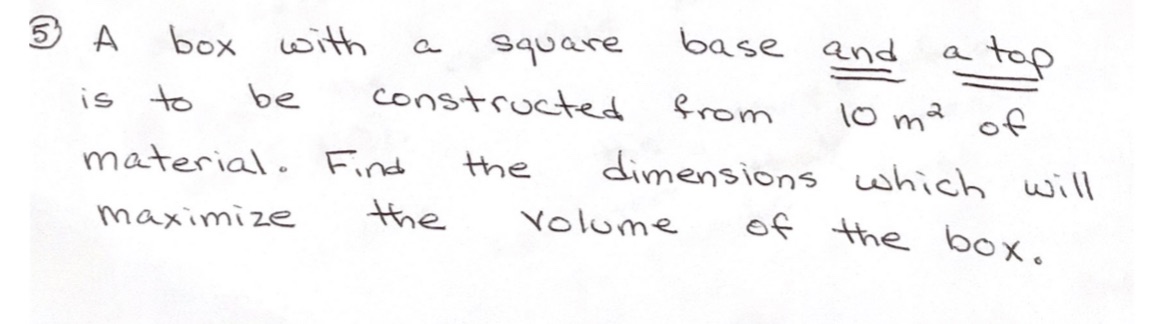 ⑤ A box with a square base and a top
is to be constructed from 10 m² of
material. Find the dimensions which will
maximize the volume of the box.